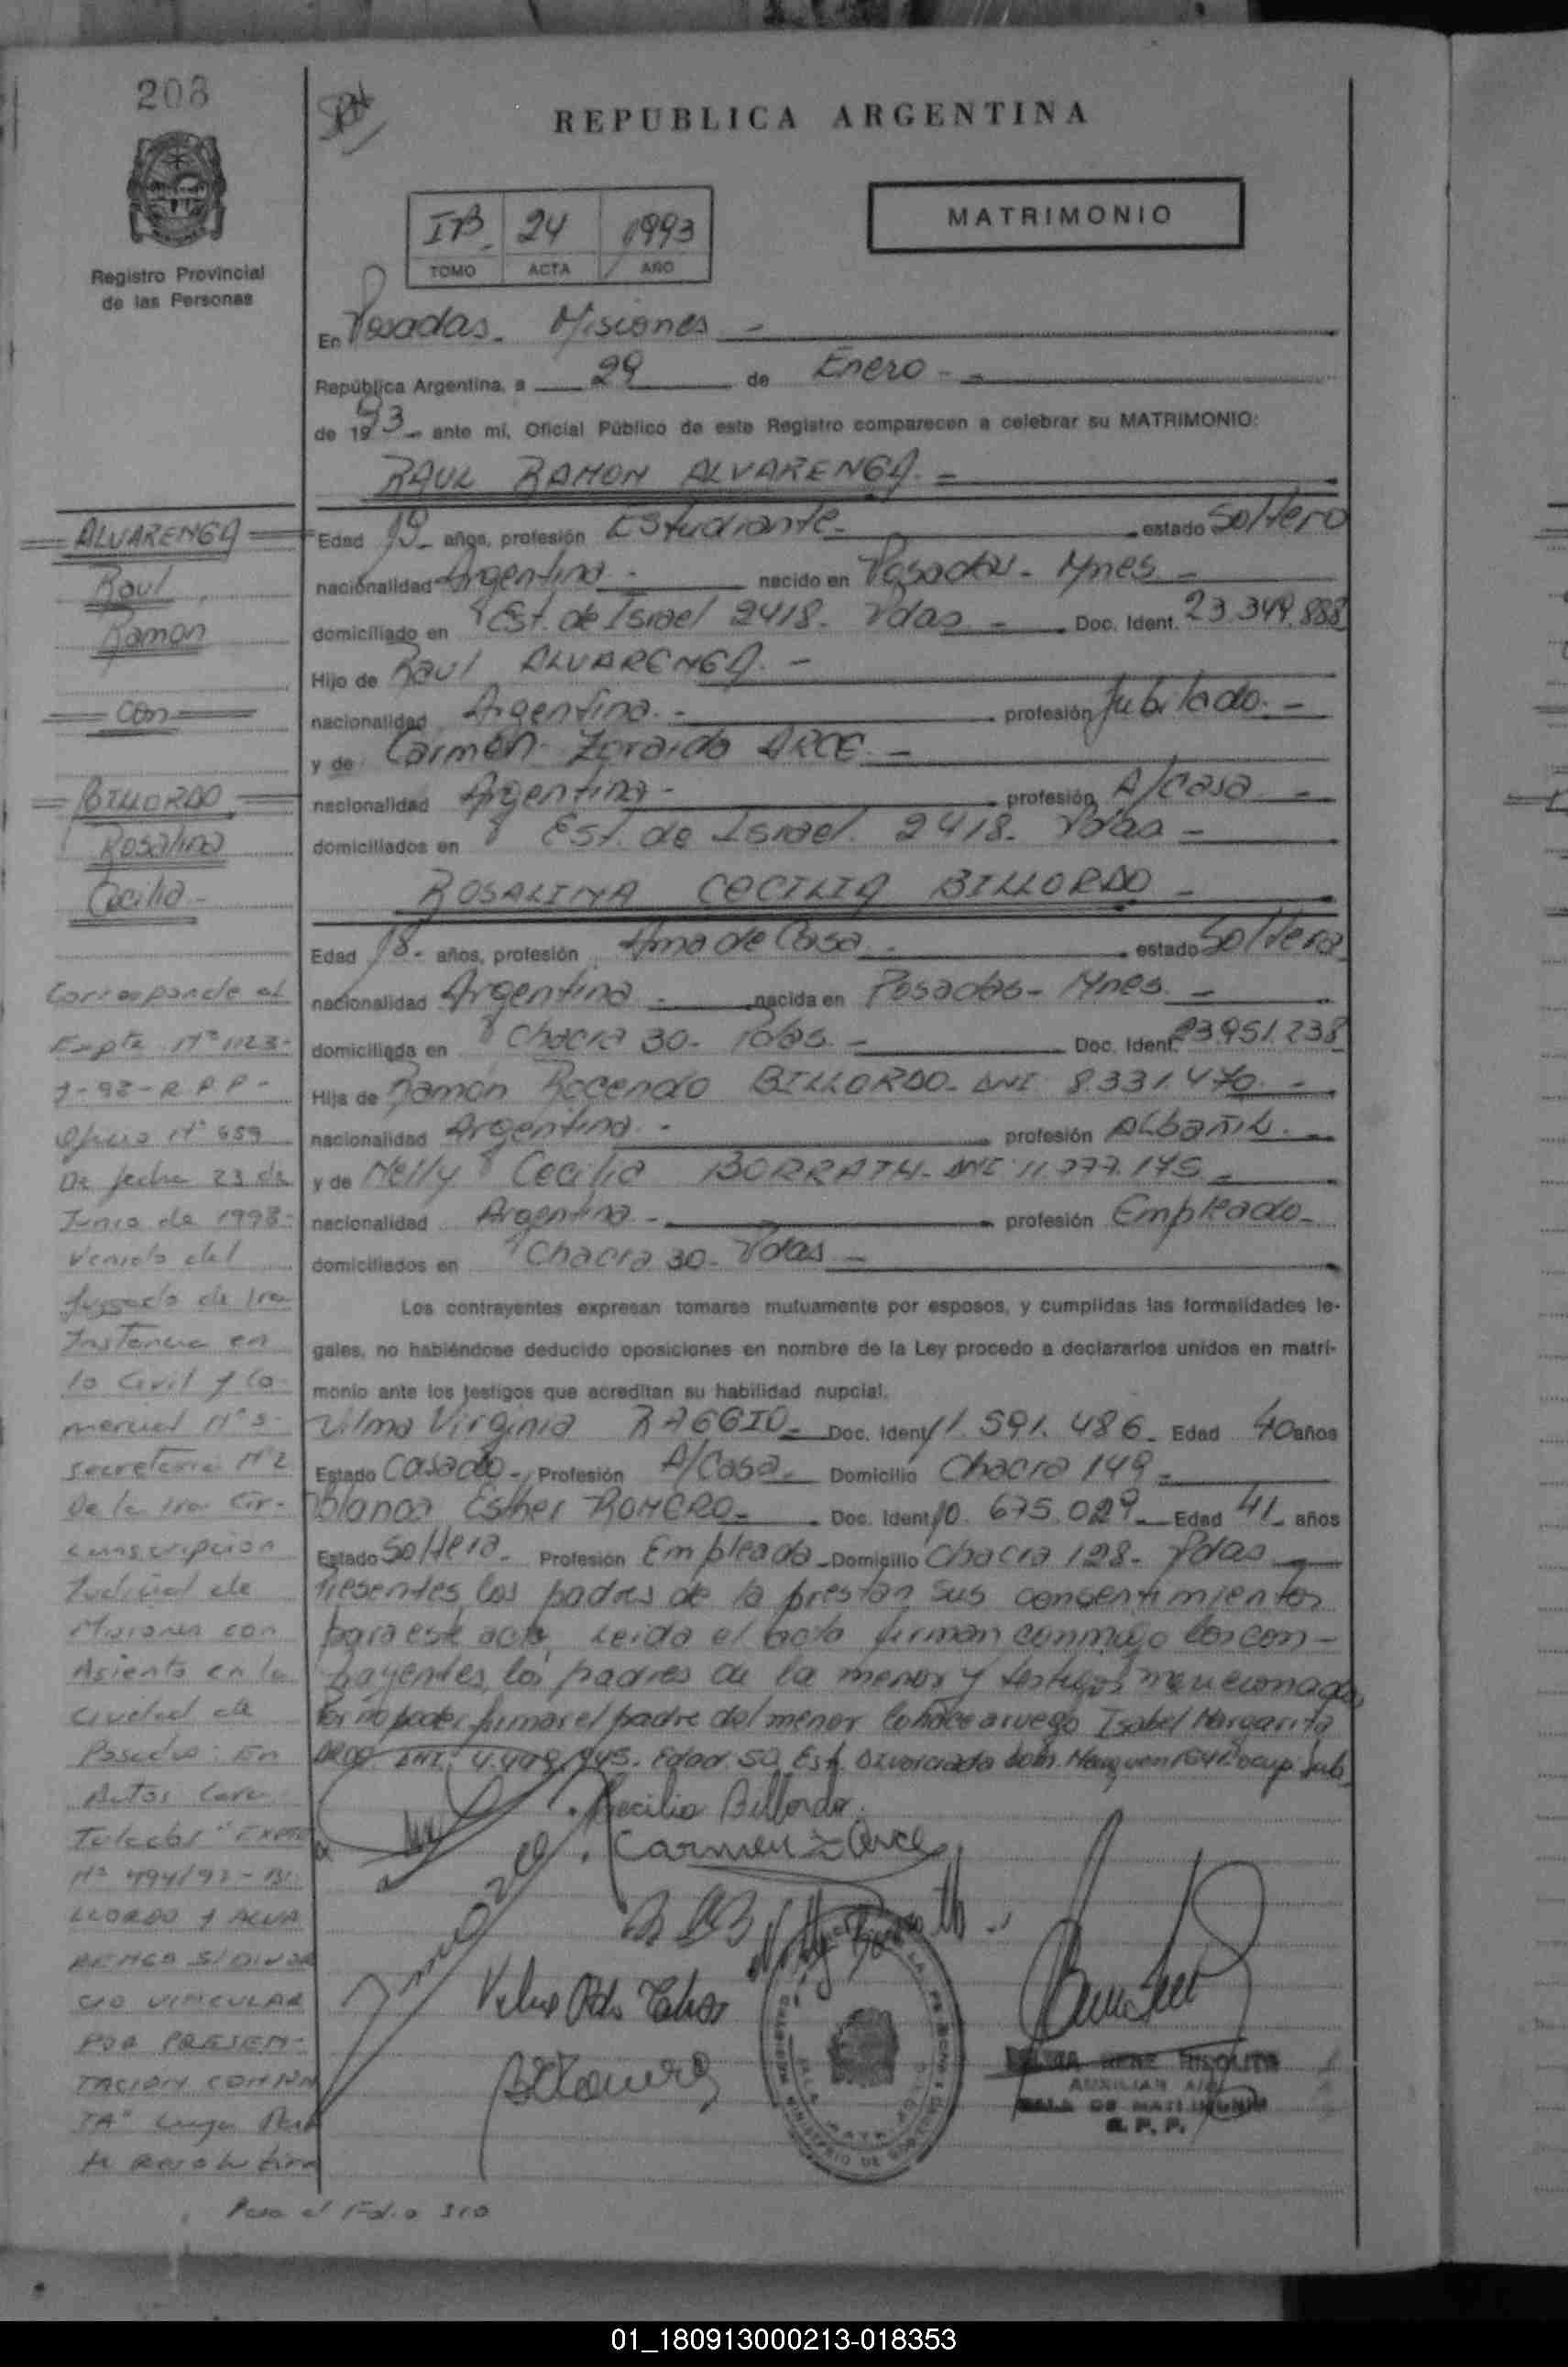 208
REPUBLICA ARGENTINA
MATRIMONIO
24 1993
TOMO ACTA AÑO
Registro Provincial
de las Personas
En Posadas. Misiones -
República Argentina, a 29 de Enero -
de 1993- ante mí, Oficial Público de este Registro comparecen a celebrar su MATRIMONIO:
RAUL RAMON ALVARENGA. =
ALVARENGA
Raul
Ramon
con
BILLORDO
Rosalina
Cecilia -
Edad 19- años, profesión Estudiante - estado Soltero
nacionalidad Argentina - nacido en Posadas - Mnes -
domiciliado en Est. de Israel 2418. Pdas - Doc. Ident. 23.349.888
Hijo de Raul ALVARENGA. -
nacionalidad Argentina. - profesión Jubilado. -
y de Carmen Zoraida ARCE. -
nacionalidad Argentina - profesión A/Casa -
domiciliados en Est. de Israel. 2418- Pdas -
ROSALINA CECILIA BILLORDO -
Edad 18- años, profesión Ama de Casa - estado Soltera
nacionalidad Argentina - nacida en Posadas - Mnes. -
domiciliada en Chacra 30- Pdas. - Doc. Ident. 23.951.238
Hija de Ramón Rocendo BILLORDO - DNI 8.331.470. -
nacionalidad Argentina - profesión Albañil. -
y de Nelly Cecilia DNI 11.277.175 -
nacionalidad Argentina - profesión Empleado-
domiciliados en Chacra 30- Pdas -
Los contrayentes expresan tomarse mutuamente por esposos, y cumplidas las formalidades le-
gales, no habiéndose deducido oposiciones en nombre de la Ley procedo a declararlos unidos en matri-
monio ante los testigos que acreditan su habilidad nupcial.
Vilma Virginia RAGGIO - Doc. Ident 11.591.486- Edad 40 años
Estado Casado - Profesión A/Casa- Domicilio Chacra 149-
Blanca Esther ROMERO - Doc. Ident 10.675.029- Edad 41- años
Estado Soltera- Profesión Empleada - Domicilio Chacra 128- Pdas -
Presentes los padres de la prestan sus consentimientos
para este acto. Leida el acta firman conmigo los con-
trayentes, los padres de la menor y testigos mencionados
Por no poder firmar el padre del menor lo hace a ruego Isabel Margarita
ARCE DNI. Edad. 50 Est. Divorciada Dom.
Corresponde al
Expte Nº 1123-
R P P -
Oficio Nº 659
De fecha 23 de
Junio de 1998-
Venido del
Juzgado de 1ra
Instancia en
lo Civil y Co-
mercial Nº 3-
Secretaria Nº 2
De la 1ra Cir-
cunscripcion
Judicial de
Misiones con
Asiento en la
Ciudad de
Posadas: En
Autos Cara-
tulados "EXPTE
Nº BI
LLORDO Y ALVA
RENGA S/ DIVOR
CIO VINCULAR
POR PRESEN-
TACION CONJUN
TA"
Cecilia Billordo
Carmen Z Arce
SALA DE MATRIMONIO
R. P. P.
Pasa al Folio 310
01_180913000213-018353